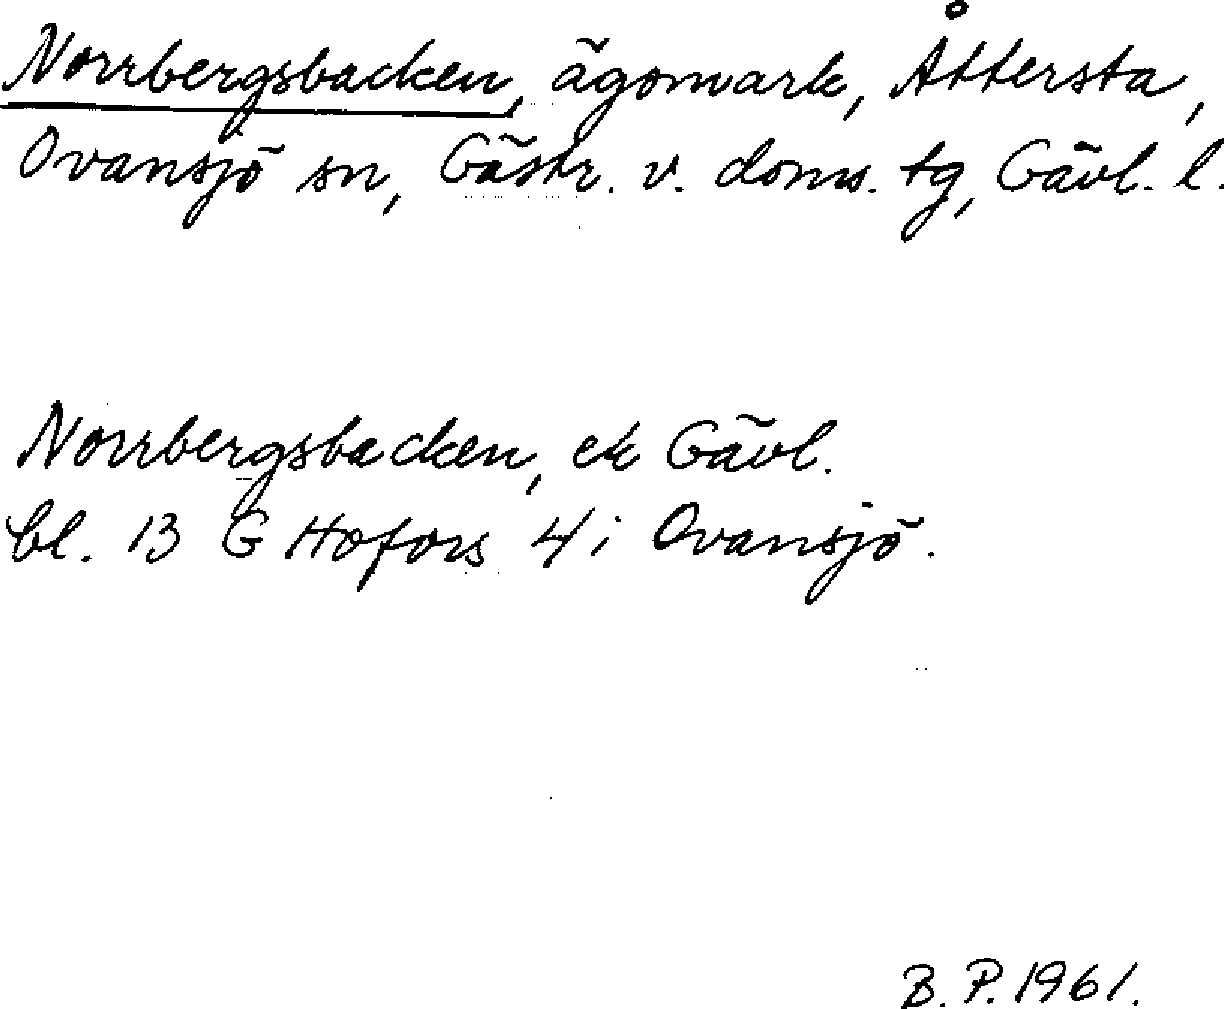 Norrbergsbacken, ägomark, Åttersta,
Ovansjö sn, Gästr. v. doms. tg, Gävl. l.
Norrbergsbacken, ek Gävl.
bl. 13 G Hofors 4 i Ovansjö.
B. P. 1961.